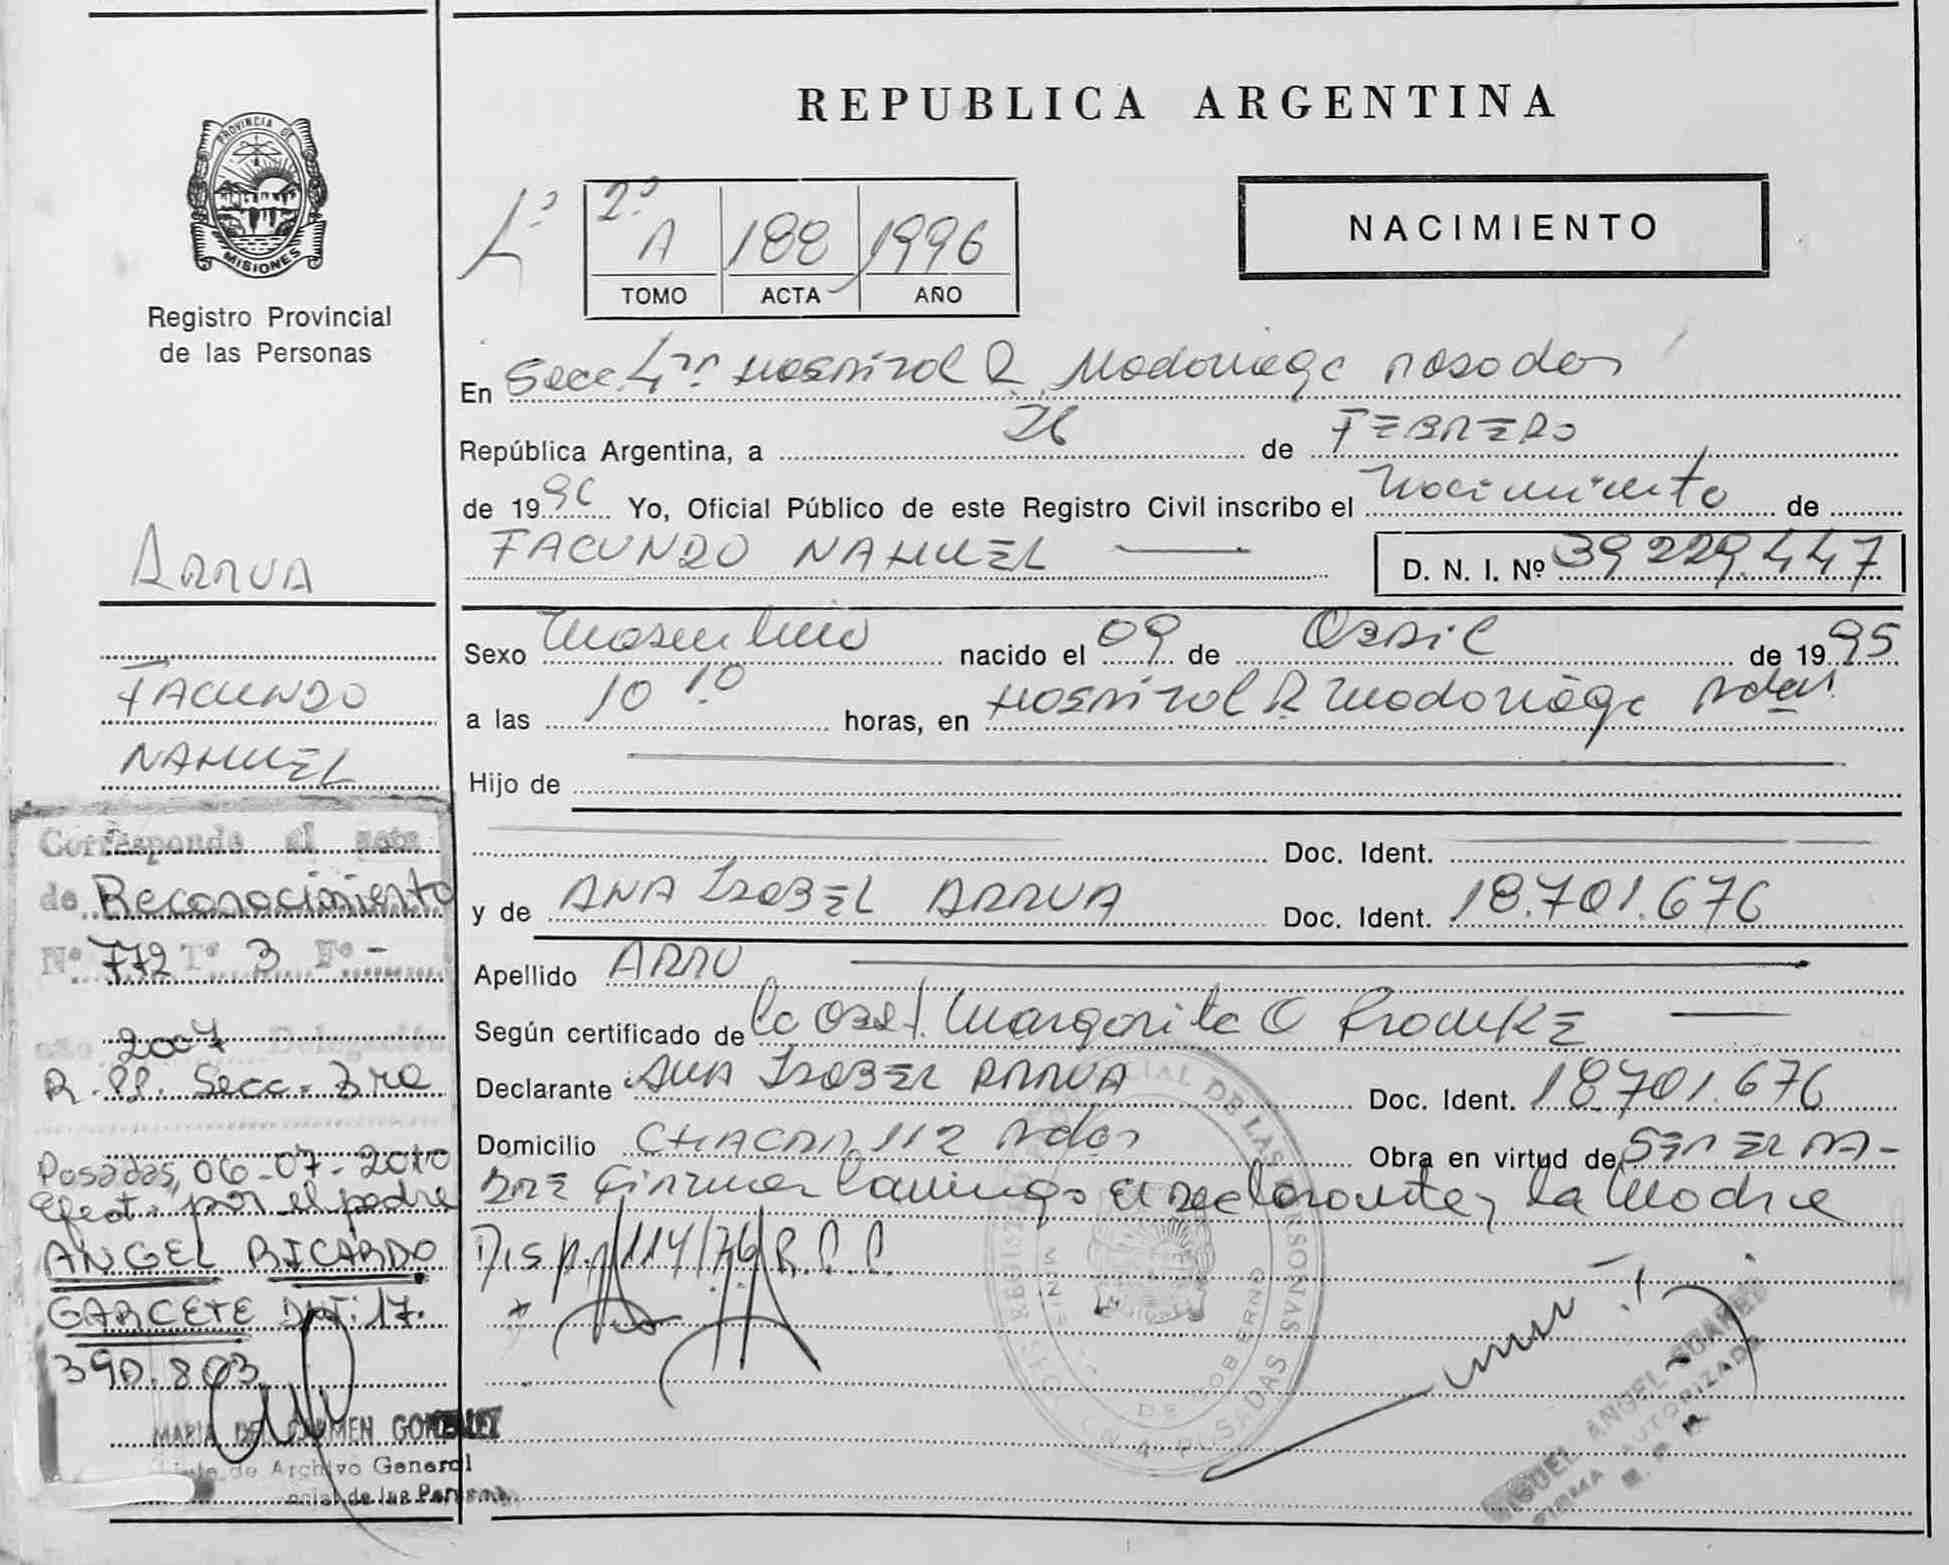 REPUBLICA ARGENTINA
PROVINCIA DE
MISIONES
Registro Provincial
de las Personas
NACIMIENTO
2º
A 188 1996
TOMO ACTA AÑO
En Secc. 4ta Hospital R. Madariaga Posadas
República Argentina, a 26 de FEBRERO
de 1996 Yo, Oficial Público de este Registro Civil inscribo el Nacimiento de
FACUNDO NAHUEL D. N. I. Nº 39 229.447
Sexo Masculino nacido el 09 de Abril de 1995
a las 10 10 horas, en Hospital R Madariaga Pdas
Hijo de
Doc. Ident.
y de ANA ISABEL ARRUA Doc. Ident. 18.701.676
Apellido ARRU
Según certificado de la Obst. Margarita O
Declarante ANA ISABEL ARRUA Doc. Ident. 18.701.676
Domicilio CHACRA 112 Pdas Obra en virtud de SER EL PA-
DRE Firman conmigo el declarante, La Madre
Disp. 114/76 R.C.C.
ARRUA
FACUNDO
NAHUEL
Corresponde al acta
de Reconocimiento
Nº 772 Tº 3 Fº -
año 2007 Delegación
R.PP. Secc. 3ra
Posadas, 06-07-2010
Efect. por el padre
ANGEL RICARDO
GARCETE DNI: 17.
390.803
MARIA DEL CARMEN GONZALEZ
de Archivo General
de las Personas
REGISTRO PROVINCIAL DE LAS PERSONAS
MINISTERIO DE GOBIERNO
POSADAS
MIGUEL ANGEL SUAREZ
FIRMA AUTORIZADA